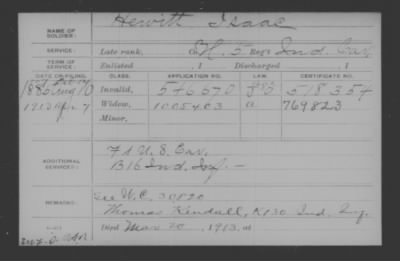 NAME OF SOLDIER: Hewitt Isaac
SERVICE: Late rank, Co. H, 5 Reg't Ind. Cav.
TERM OF SERVICE: Enlisted , 1 Discharged , 1
DATE OF FILING. CLASS. APPLICATION NO. LAW. CERTIFICATE NO.
1886 Aug 10 Invalid, 546670 518357
1913 Ap. 7 Widow, 1005403 769823
Minor,
ADDITIONAL SERVICES: 7 U.S. Cav.
B 16 Ind. Inf. —
REMARKS: See W.C. 30820
Thomas Kendall, K 130 Ind. Inf.
Died Mar 20, 1913, at